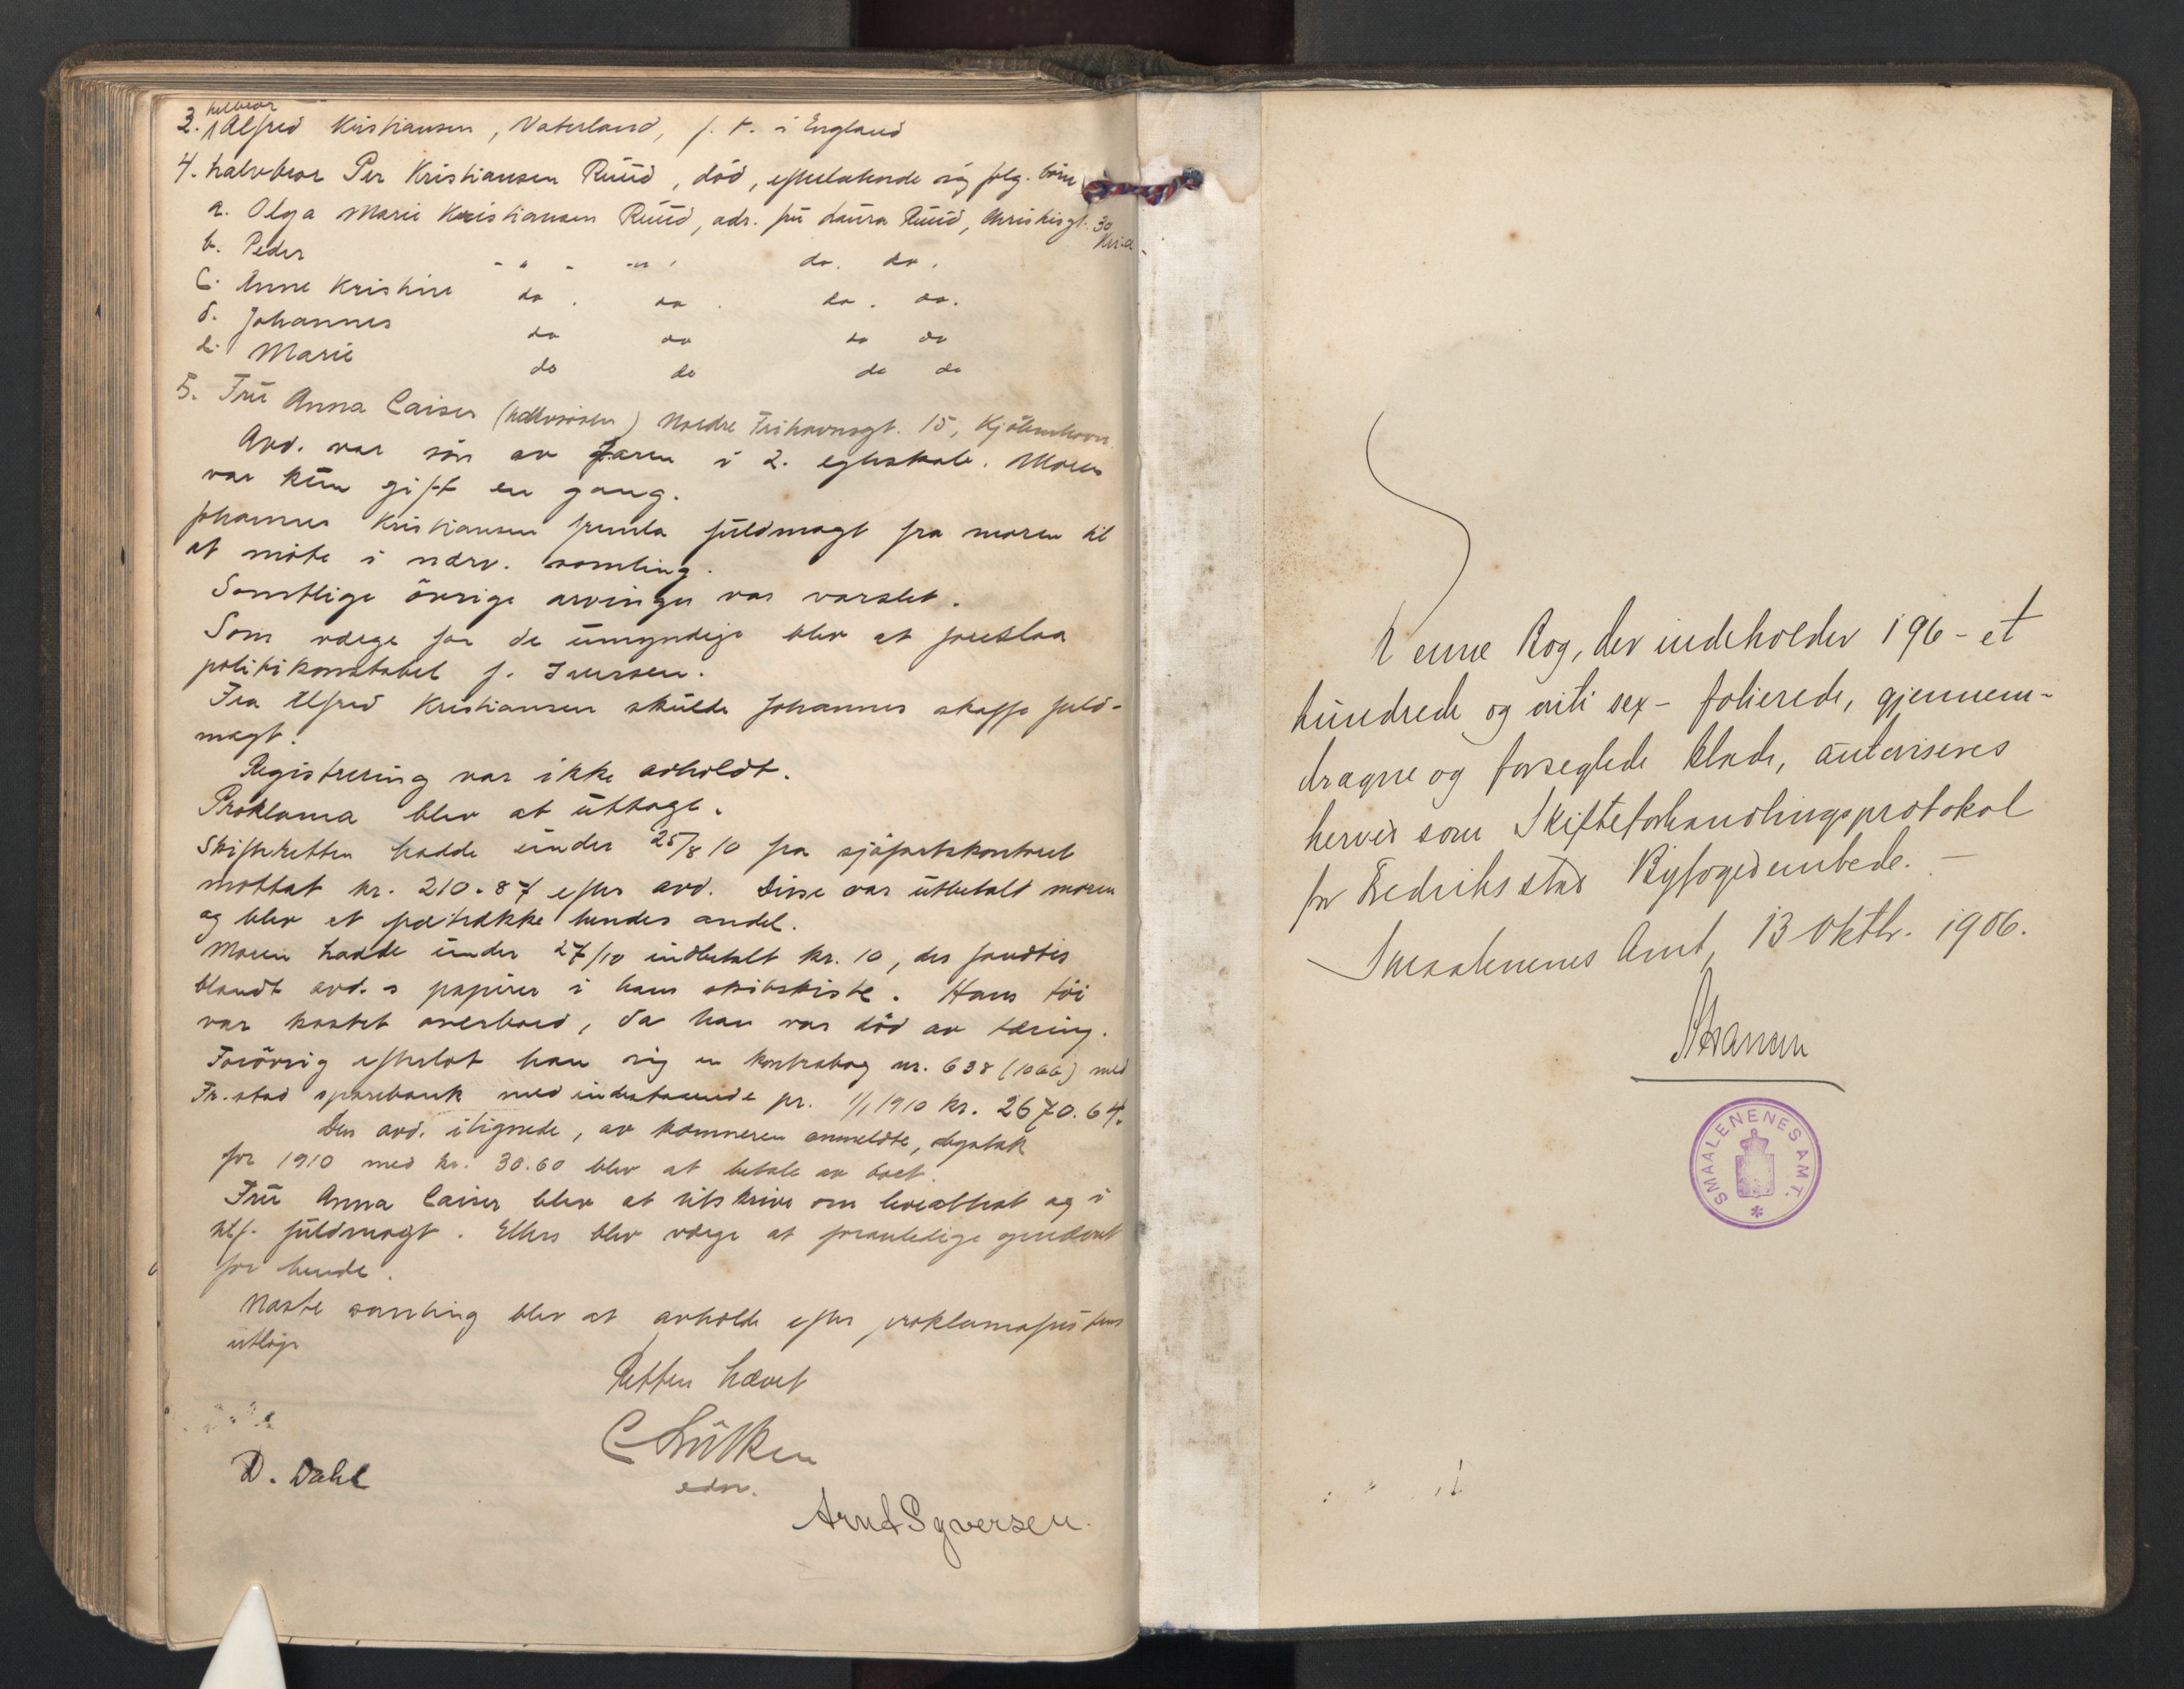 helbror
3. Alfred Kristiansen, Vaterland, p. t. i England
4. halvbror Per Kristiansen Ruud, död, efterlatende sig følg. börn
a. Olga Marie Kristiansen Ruud, adr. fru Laura Ruud, Christiesgt. 30
Kr.a.
b. Peder - " - - " - do. do.
c. Anne Kristine do. do. do. do.
d. Johannes do do do do
e. Marie do do do do
5. Fru Anna Caiser (halvsöster) Nordre Frihavnsgt. 15, Kjöbenhavn.
Avd. var sön av faren i 2. egteskab. Moren
var kun gift en gang.
Johannes Kristiansen fremla fuldmagt fra moren til
at möte i nærv. samling.
Samtlige övrige arvinger var varslet.
Som værge for de umyndige blev at foreslaa
politikonstabel J. Iversen.
Fra Alfred Kristiansen skulde Johannes skaffe fuld-
magt.
Registrering var ikke avholdt.
Proklama blev at uttage.
Skifteretten hadde under 25/8 10 fra sjöfartskontoret
mottat kr. 210.87 efter avd. Disse var utbetalt moren
og blev at fratrække hendes andel.
Moren hadde under 27/10 indbetalt kr. 10, der fandtes
blandt avd.s papirer i hans skibskiste. Hans töi
var kastet overbord, da han var död av tæring.
Forövrig efterlot han sig en kontrabog nr. 638 (1066) med
Fr.stad sparebank med indestaaende pr. 1/1 1910 kr. 2670.64.
Den avd. ilignede, av kæmneren anmeldte, byskat
for 1910 med kr. 30.60 blev at betale av boet.
Fru Anna Caiser blev at tilskrive om leveattest og i
tilf. fuldmagt. Ellers blev værge at foranledige opnævnt
for hende.
Næste samling blev at avholde efter proklamafristens
utlöp
Retten hævet
C Lütken
edsv.
D. Dahl
Arnt Syversen.
Denne Bog, der indeholder 196 - et
hundrede og niti sex - folierede, gjennem-
dragne og forseglede Blade, autoriseres
herved som Skifteforhandlingsprotokol
for Fredriksstad Byfogedembede. -
Smaalenenes Amt, 13 Oktbr. 1906.
SMAALENENES AMT.